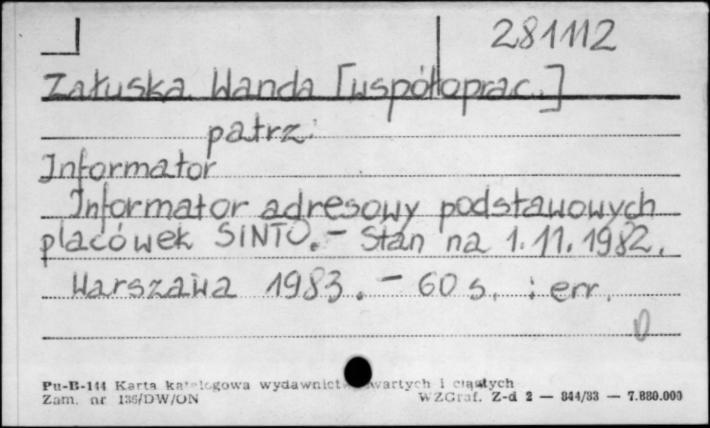 281112
Załuska Wanda [współoprac.]
patrz:
Informator
Informator adresowy podstawowych
placówek SINTO. – Stan na 1.11.1982.
Warszawa 1983. – 60 s. : err.
Pu-B-144 Karta katalogowa wydawnictw zwartych i ciągłych
Zam. nr 136/DW/ON WZGraf. Z-d 2 — 844/83 — 7.880.000